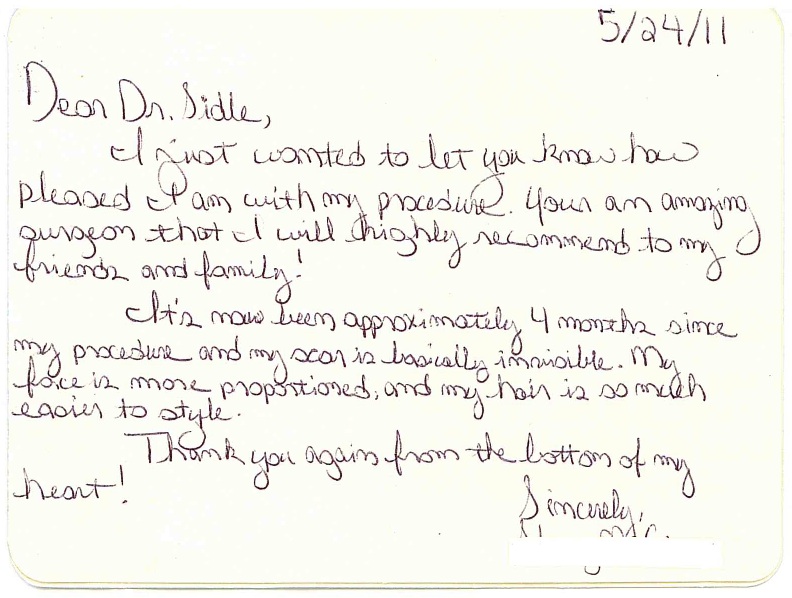 5/24/11
Dear Dr. Sidle,
I just wanted to let you know how
pleased I am with my procedure. Your an amazing
surgeon that I will highly recommend to my
friends and family!
It's now been approximately 4 months since
my procedure and my scar is basically invisible. My
face is more proportioned, and my hair is so much
easier to style.
Thank you again from the bottom of my
heart!
Sincerely,